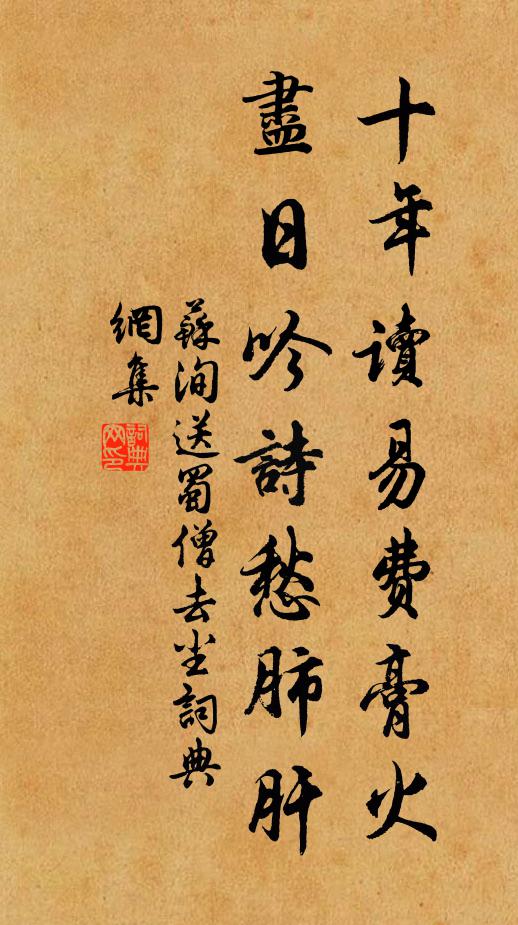 十年讀易費膏火
盡日吟詩愁肺肝
蘇洵送蜀僧去尘詞典
網集
詞典
网印